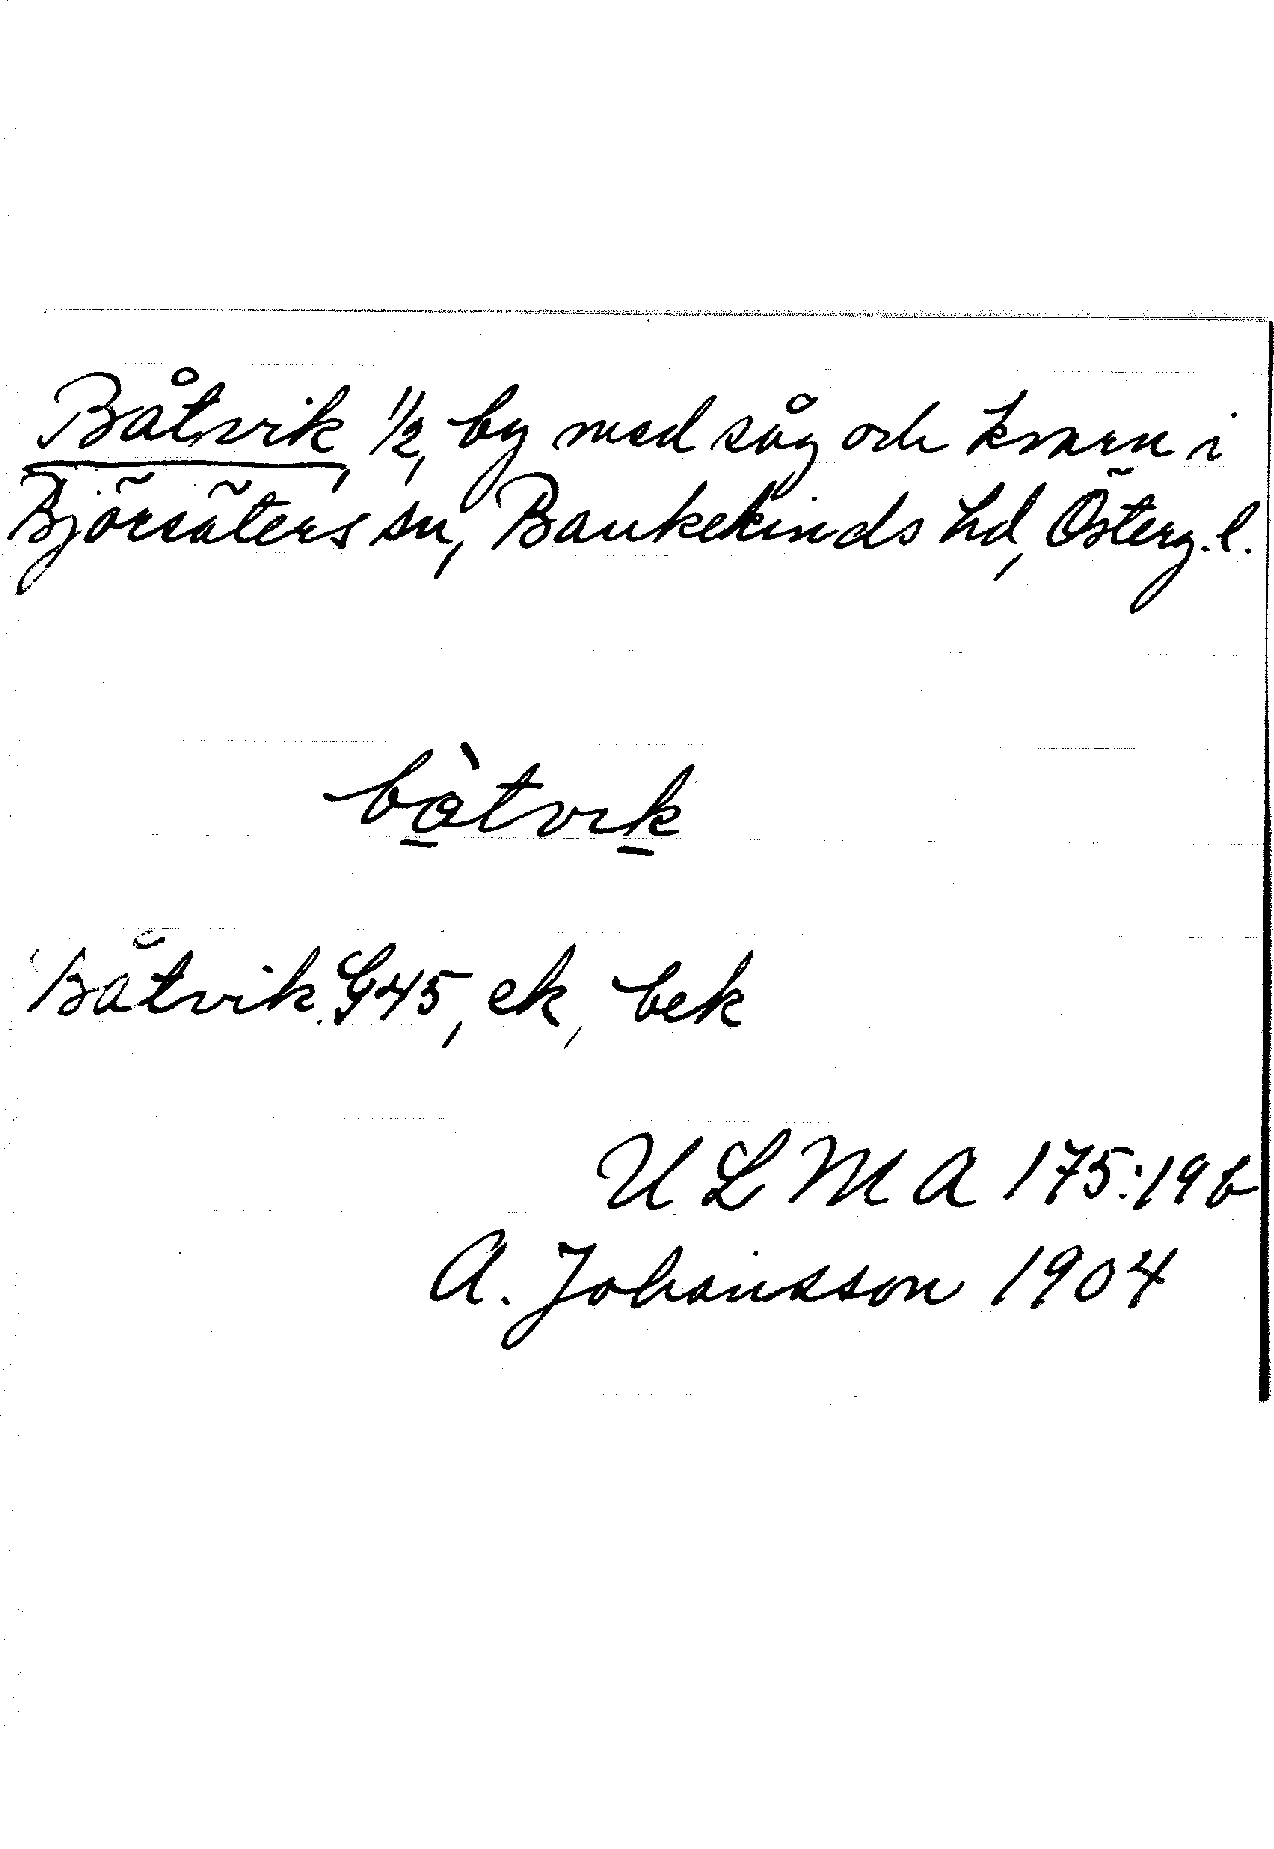 Båtvik, 1/2, by med såg och kvarn i
Björsäters sn, Bankekinds hd, Österg. l.
bàtvik
Båtvik G45, ek, bek
ULMA 175:19b
A. Johansson 1904